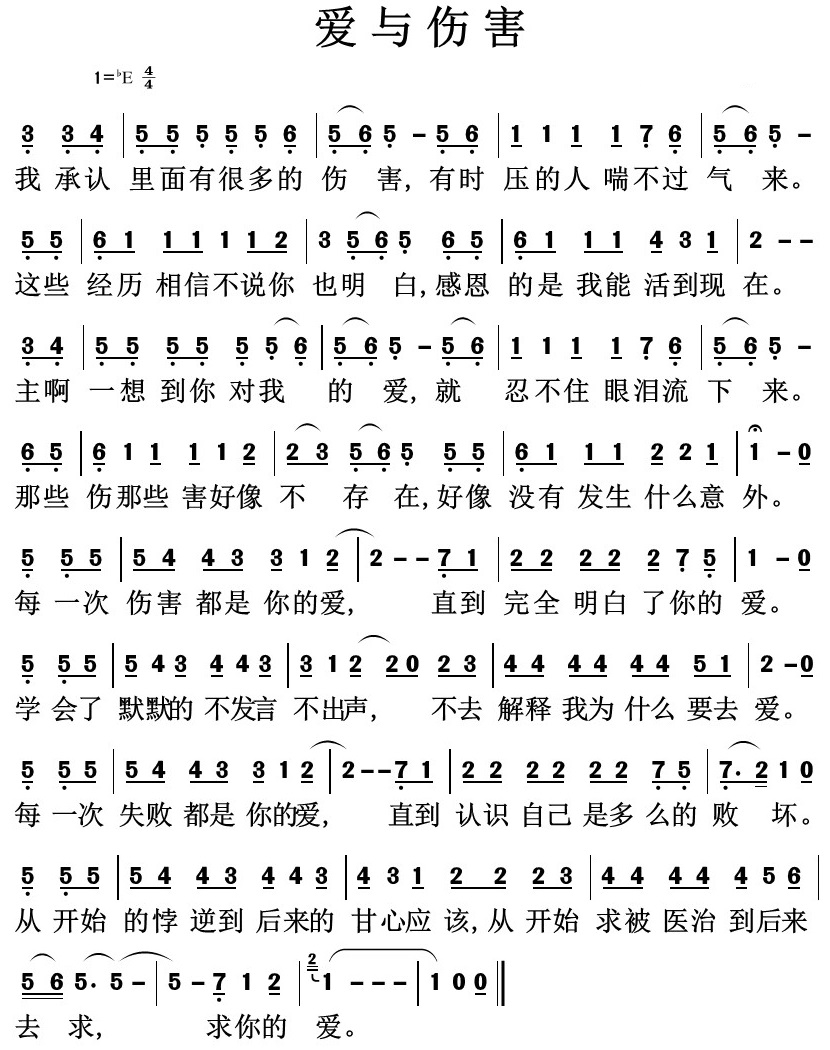 爱与伤害
1=♭E 4/4
3 3 4 | 5 5 5 5 5 6 | 5 6 5 – 5 6 | 1 1 1 1 7 6 | 5 6 5 –
我 承认 里面有很多的 伤 害, 有时 压的人 喘不过 气 来。
5 5 | 6 1 1 1 1 1 2 | 3 5 6 5 6 5 | 6 1 1 1 4 3 1 | 2 – –
这些 经历 相信不说你 也明 白, 感恩 的是 我能 活到现 在。
3 4 | 5 5 5 5 5 5 6 | 5 6 5 – 5 6 | 1 1 1 1 7 6 | 5 6 5 –
主啊 一想 到你 对我 的 爱, 就 忍不住 眼泪流 下 来。
6 5 | 6 1 1 1 1 2 | 2 3 5 6 5 5 5 | 6 1 1 1 2 2 1 | 1 – 0
那些 伤那些 害好像 不 存 在, 好像 没有 发生 什么意 外。
5 5 5 | 5 4 4 3 3 1 2 | 2 – – 7 1 | 2 2 2 2 2 7 5 | 1 – 0
每 一次 伤害 都是 你的爱, 直到 完全 明白 了你的 爱。
5 5 5 | 5 4 3 4 4 3 | 3 1 2 2 0 2 3 | 4 4 4 4 4 4 5 1 | 2 – 0
学 会了 默默的 不发言 不出声, 不去 解释 我为 什么 要去 爱。
5 5 5 | 5 4 4 3 3 1 2 | 2 – – 7 1 | 2 2 2 2 2 2 7 5 | 7. 2 1 0
每 一次 失败 都是 你的爱, 直到 认识 自己 是多 么的 败 坏。
5 5 5 | 5 4 4 3 4 4 3 | 4 3 1 2 2 2 3 | 4 4 4 4 4 5 6 |
从 开始 的悖 逆到 后来的 甘心应 该, 从 开始 求被 医治 到后来
5 6 5. 5 – | 5 – 7 1 2 | 2 1 – – – | 1 0 0 ‖
去 求, 求你的 爱。